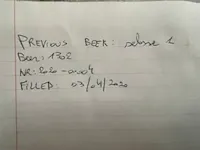 PREVIOUS BEER: selsve 1
Beer: 1302
NR: 2020-0004
FILLED: 03/04/2020